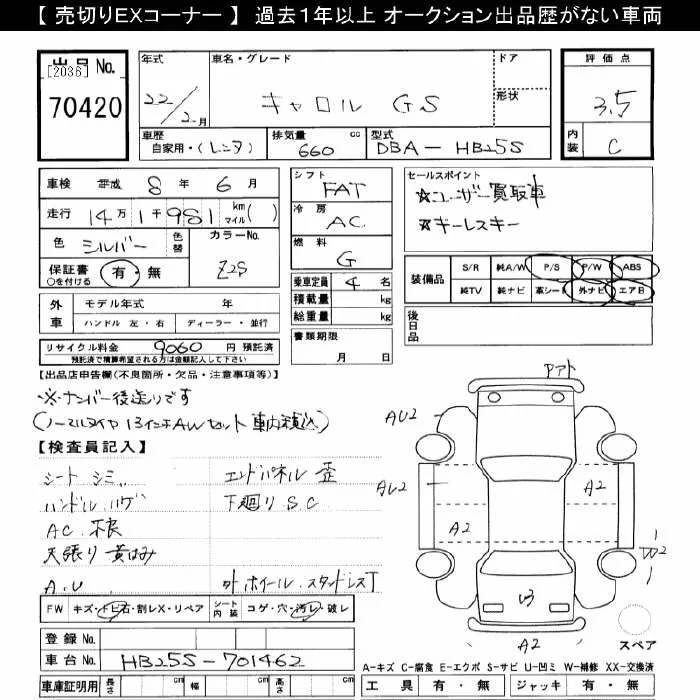 【 売切りEXコーナー 】 過去1年以上 オークション出品歴がない車両
出品No.
[2036]
70420
年式
22/2月
車名・グレード
キャロル GS
ドア
形状
車歴
自家用・(レンタ)
排気量 cc
660
型式
DBA-HB25S
評価点
3.5
内装
C
車検 平成 8年 6月
走行 14万1千981 km マイル( )
色 シルバー 色替
カラーNo.
Z2S
保証書 有・無
○を付ける
外車 モデル年式 年
ハンドル 左・右 ディーラー・並行
リサイクル料金 9060円 預託済
預託済で精算希望される方は金額記入して下さい
シフト
FAT
冷房
AC
燃料
G
乗車定員 4名
積載量 kg
総重量 kg
書類期限
月 日
セールスポイント
☆ユーザー買取車
☆キーレスキー
装備品 S/R 純A/W P/S P/W ABS
純TV 純ナビ 革シート 外ナビ エアB
後日品
【出品店申告欄(不良箇所・欠品・注意事項等)】
※ナンバー後送りです
(ノーマルタイヤ 13インチAWセット 車内積込)
【検査員記入】
シート シミ エンドパネル 歪
ハンドル ハゲ 下廻り S.C
AC 不良
天張り 黄ばみ
A.U 外ホイール.スタッドレスT
FW キズ・トビ石・割レX・リペア シート内装 コゲ・穴・汚レ・破レ
登録No.
車台No. HB25S-701462
車庫証明用 長さ cm 幅 cm 高さ cm
Pアト
AU2
AU2
A2
A2
W2
U3
A2
スペア
A-キズ C-腐食 E-エクボ S-サビ U-凹ミ W-補修 XX-交換済
工具 有・無 ジャッキ 有・無